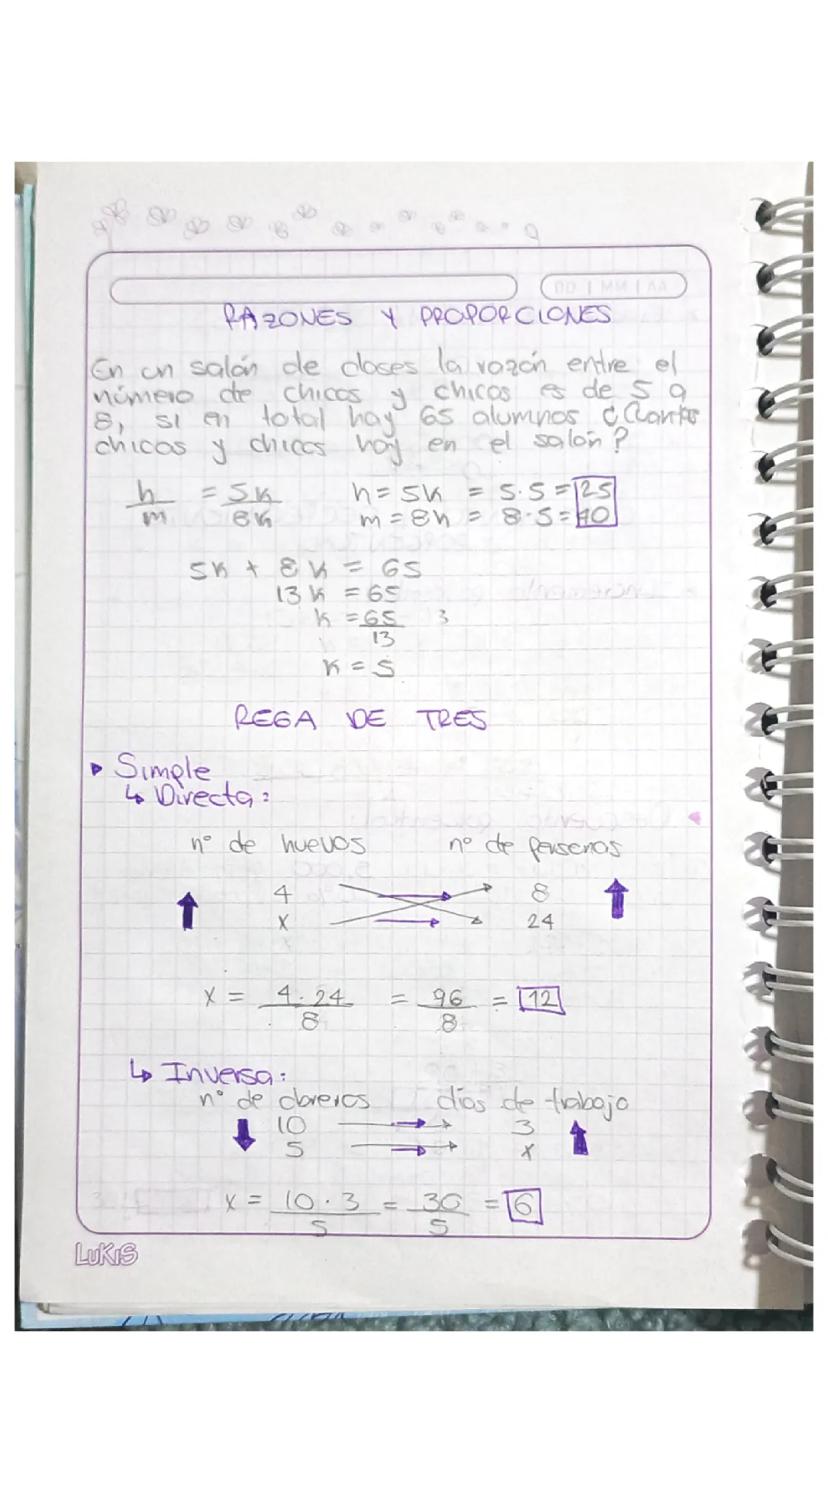 DD | MM | AA
RAZONES Y PROPORCIONES
En un salón de clases la razón entre el
número de chicos y chicas es de 5 a
8, si en total hay 65 alumnos ¿Cuantos
chicas y chicos hay en el salón?
h/m = 5k/8k h = 5k = 5·5 = 25
m = 8k = 8·5 = 40
5k + 8k = 65
13k = 65
k = 65/13
k = 5
REGA DE TRES
▸ Simple
↳ Directa:
n° de huevos n° de personas
4 8
x 24
x = 4·24/8 = 96/8 = 12
↳ Inversa:
n° de obreros días de trabajo
10 3
5 x
x = 10·3/5 = 30/5 = 6
LUKIS